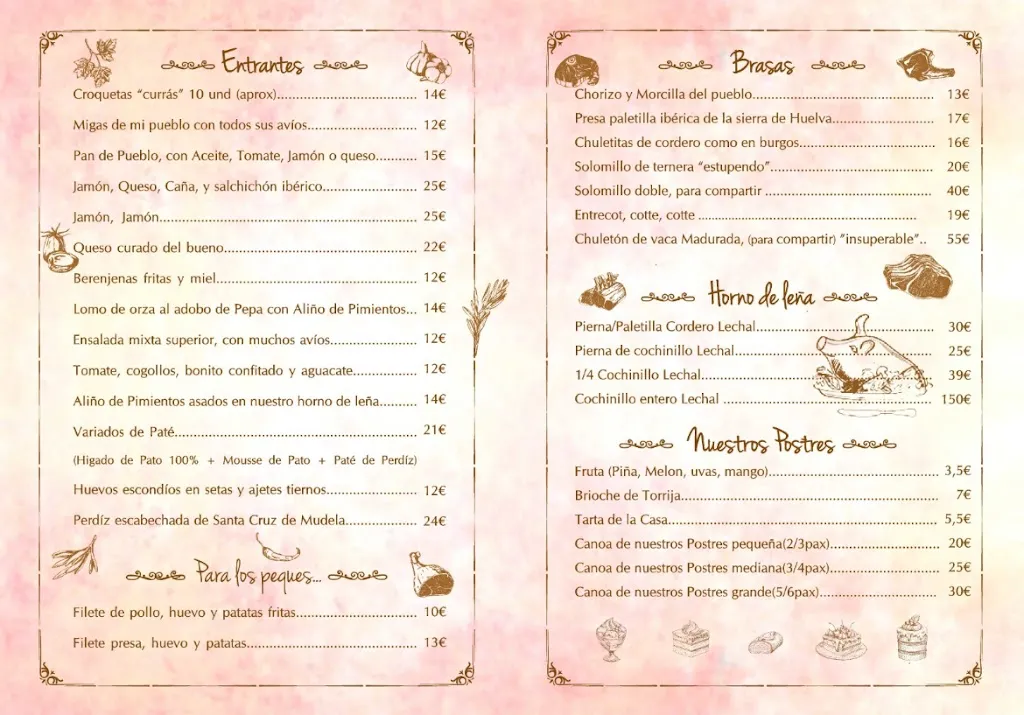 Entrantes
Croquetas "currás" 10 und (aprox)........ 14€
Migas de mi pueblo con todos sus avíos........ 12€
Pan de Pueblo, con Aceite, Tomate, Jamón o queso........ 15€
Jamón, Queso, Caña, y salchichón ibérico........ 25€
Jamón, Jamón........ 25€
Queso curado del bueno........ 22€
Berenjenas fritas y miel........ 12€
Lomo de orza al adobo de Pepa con Aliño de Pimientos... 14€
Ensalada mixta superior, con muchos avíos........ 12€
Tomate, cogollos, bonito confitado y aguacate........ 12€
Aliño de Pimientos asados en nuestro horno de leña........ 14€
Variados de Paté........ 21€
(Higado de Pato 100% + Mousse de Pato + Paté de Perdíz)
Huevos escondíos en setas y ajetes tiernos........ 12€
Perdíz escabechada de Santa Cruz de Mudela........ 24€
Para los peques...
Filete de pollo, huevo y patatas fritas........ 10€
Filete presa, huevo y patatas........ 13€
Brasas
Chorizo y Morcilla del pueblo........ 13€
Presa paletilla ibérica de la sierra de Huelva........ 17€
Chuletitas de cordero como en burgos........ 16€
Solomillo de ternera "estupendo"........ 20€
Solomillo doble, para compartir ........ 40€
Entrecot, cotte, cotte ........ 19€
Chuletón de vaca Madurada, (para compartir) "insuperable".. 55€
Horno de leña
Pierna/Paletilla Cordero Lechal........ 30€
Pierna de cochinillo Lechal........ 25€
1/4 Cochinillo Lechal........ 39€
Cochinillo entero Lechal ........ 150€
Nuestros Postres
Fruta (Piña, Melon, uvas, mango)........ 3,5€
Brioche de Torrija........ 7€
Tarta de la Casa........ 5,5€
Canoa de nuestros Postres pequeña(2/3pax)........ 20€
Canoa de nuestros Postres mediana(3/4pax)........ 25€
Canoa de nuestros Postres grande(5/6pax)........ 30€